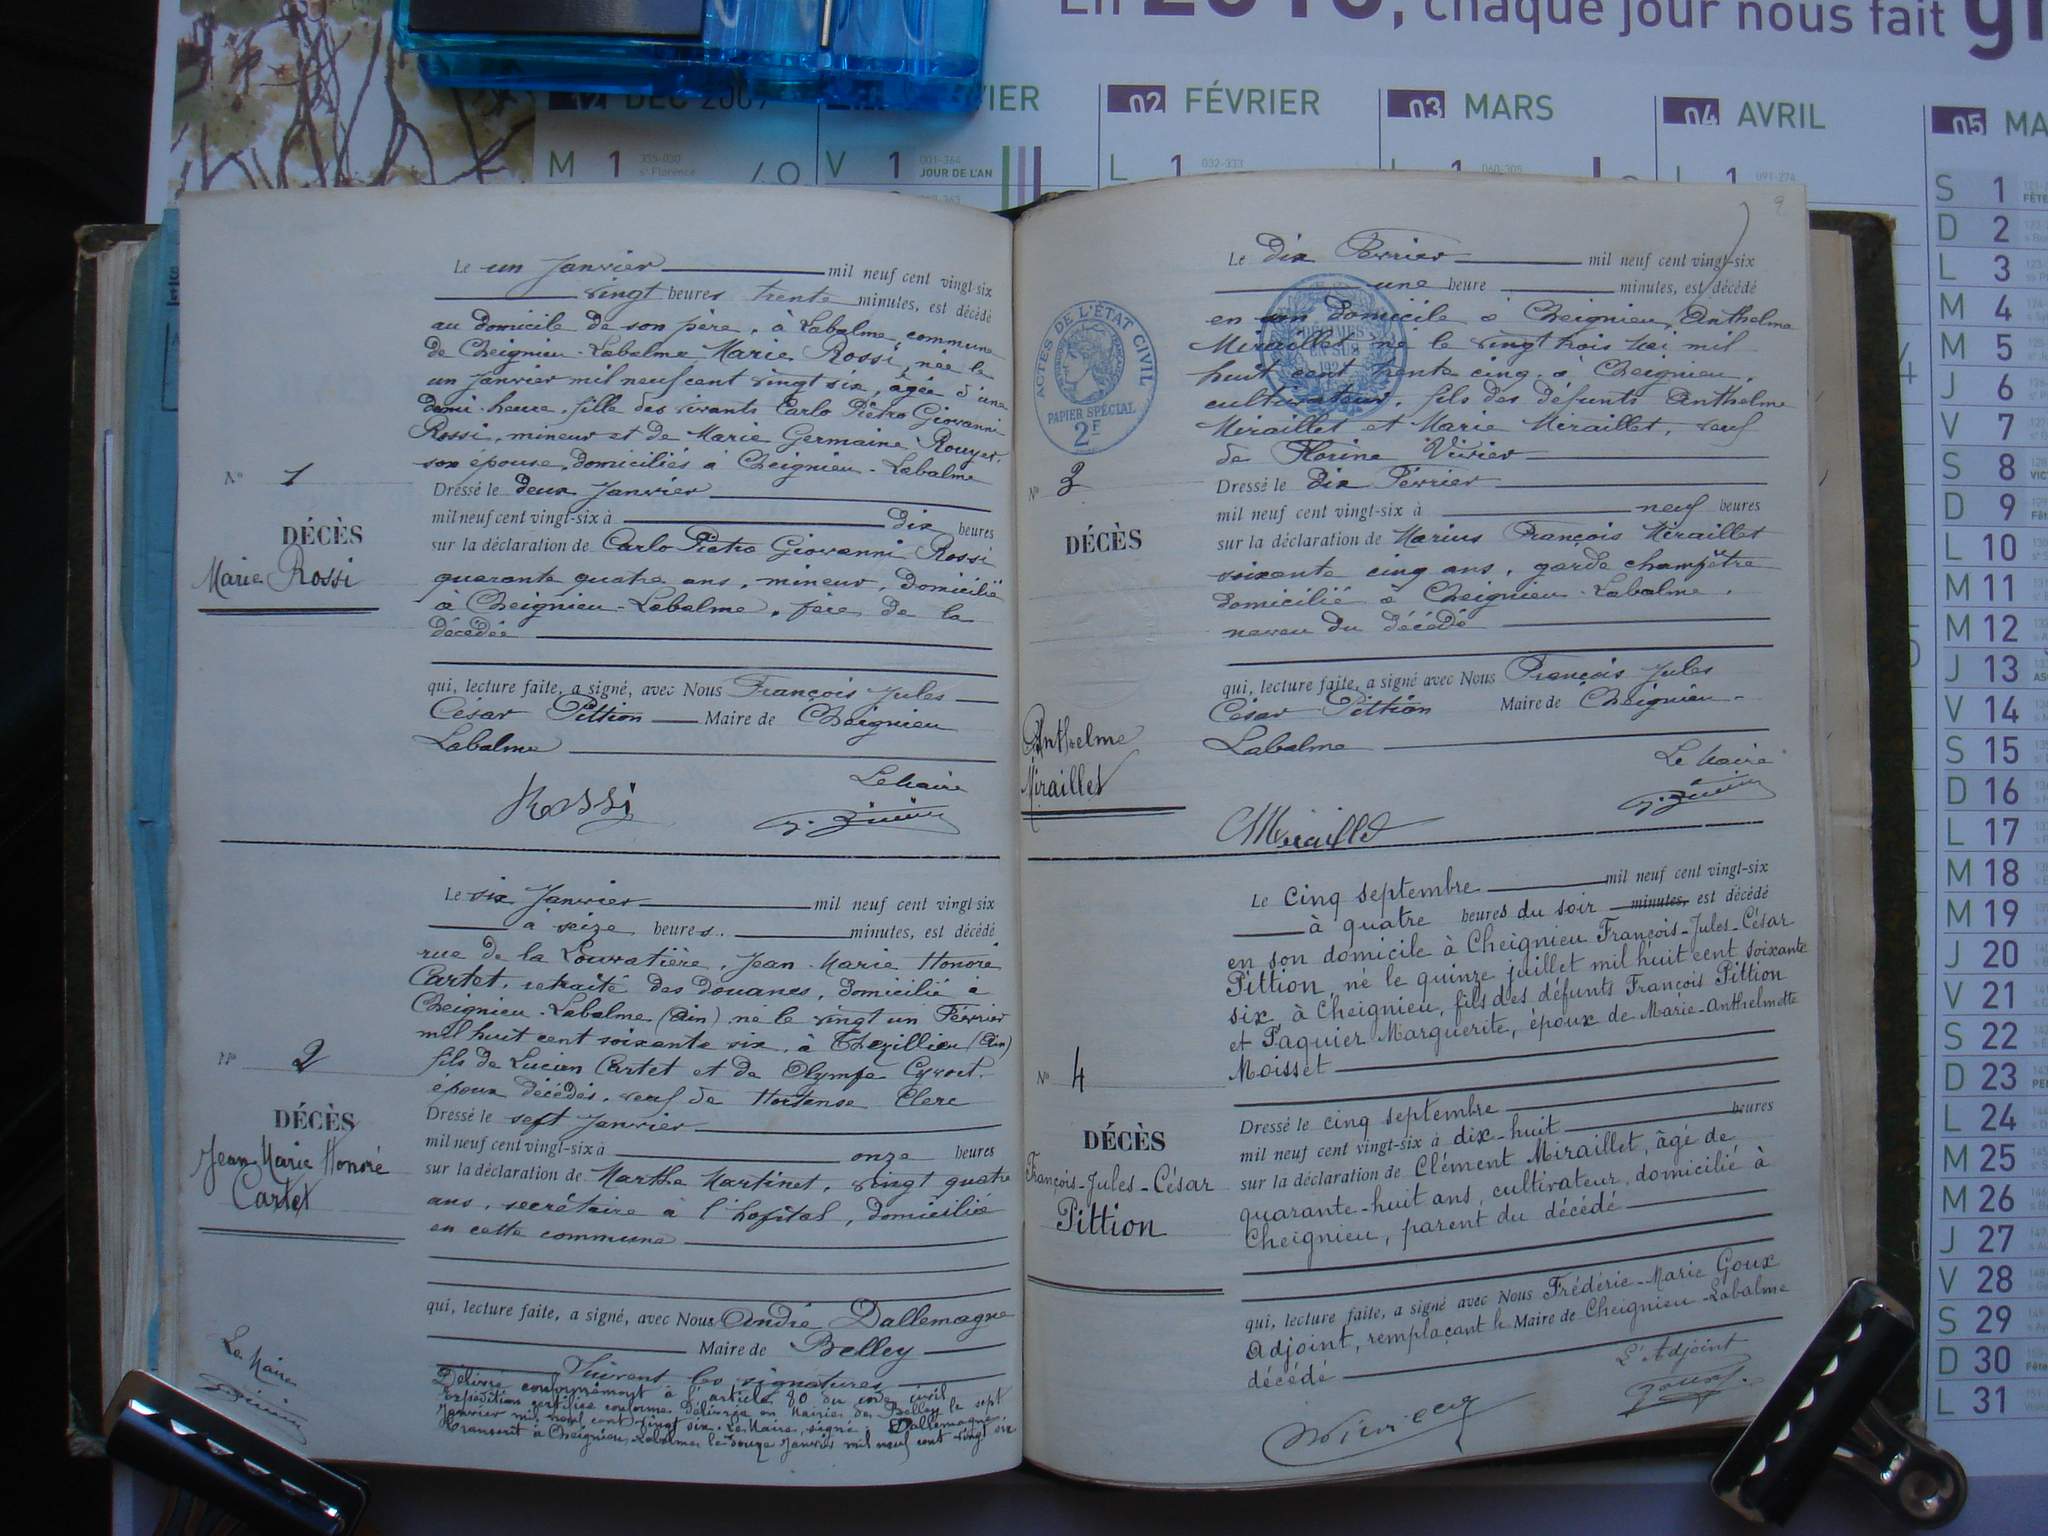 En 2010, chaque jour nous fait gr
DÉC 2009
VIER
02 FÉVRIER
03 MARS
04 AVRIL
05 MA
M 1
V 1 JOUR DE L'AN
L 1
L 1
S 1
D 2
L 3
M 4
M 5
J 6
V 7
S 8
D 9
L 10
M 11
M 12
J 13
V 14
S 15
D 16
L 17
M 18
M 19
J 20
V 21
S 22
D 23
L 24
M 25
M 26
J 27
V 28
S 29
D 30
L 31
Le un Janvier mil neuf cent vingt-six
vingt heures trente minutes, est décédée
au domicile de son père, à Labalme, commune
de Cheignieu-Labalme Marie Rossi, née le
un Janvier mil neuf cent vingt six, âgée d'une
demi-heure, fille des vivants Carlo Pietro Giovanni
Rossi, mineur et de Marie Germaine Rouyer
son épouse, domiciliés à Cheignieu-Labalme
N° 1
DÉCÈS
Marie Rossi
Dressé le deux Janvier
mil neuf cent vingt-six à dix heures
sur la déclaration de Carlo Pietro Giovanni Rossi
quarante quatre ans, mineur, domicilié
à Cheignieu-Labalme, père de la
décédée
qui, lecture faite, a signé, avec Nous François Jules
César Pittion Maire de Cheignieu
Labalme
Rossi
Le Maire
Le six Janvier mil neuf cent vingt-six
à seize heures minutes, est décédé
rue de la Louvatière, Jean-Marie Honoré
Cartet, retraité des douanes, domicilié à
Cheignieu-Labalme (Ain) né le vingt un Février
mil huit cent soixante six, à Thézillieu (Ain)
fils de Lucien Cartet et de Olympe Cyvoct
époux décédés, veuf de Hortense Clerc
N° 2
DÉCÈS
Jean Marie Honoré
Cartet
Dressé le sept Janvier
mil neuf cent vingt-six à onze heures
sur la déclaration de Marthe Martinet, vingt quatre
ans, secrétaire à l'hôpital, domiciliée
en cette commune
qui, lecture faite, a signé, avec Nous André Dallemagne
Maire de Belley
Suivent les signatures
Délivré conformément à l'article 80 du code civil
Expédition certifiée conforme délivrée en Mairie de Belley le sept
Janvier mil neuf cent vingt six. Le Maire, signé: Dallemagne
Transcrit à Cheignieu-Labalme le douze Janvier mil neuf cent vingt six
Le Maire
9
Le dix Février mil neuf cent vingt-six
une heure minutes, est décédé
en son domicile à Cheignieu, Anthelme
Miraillet né le vingt trois Mai mil
huit cent trente cinq, à Cheignieu,
cultivateur, fils des défunts Anthelme
Miraillet et Marie Miraillet, veuf
de Florine Vivier
ACTES DE L'ÉTAT CIVIL
PAPIER SPÉCIAL
2F
DÉCIMES
EN SUS
N° 3
DÉCÈS
Anthelme
Miraillet
Dressé le dix Février
mil neuf cent vingt-six à neuf heures
sur la déclaration de Marius François Miraillet
soixante cinq ans, garde champêtre
domicilié à Cheignieu-Labalme,
neveu du décédé
qui, lecture faite, a signé avec Nous François Jules
César Pittion Maire de Cheignieu-
Labalme
Le Maire
Miraillet
Le cinq septembre mil neuf cent vingt-six
à quatre heures du soir minutes, est décédé
en son domicile à Cheignieu François-Jules-César
Pittion, né le quinze juillet mil huit cent soixante
six, à Cheignieu, fils des défunts François Pittion
et Paquier Marguerite, époux de Marie-Anthelmette
Moisset
N° 4
DÉCÈS
François-Jules-César
Pittion
Dressé le cinq septembre
mil neuf cent vingt-six à dix-huit heures
sur la déclaration de Clément Miraillet, âgé de
quarante-huit ans, cultivateur, domicilié à
Cheignieu, parent du décédé
qui, lecture faite, a signé avec Nous Frédéric-Marie Goux
Adjoint, remplaçant le Maire de Cheignieu-Labalme
décédé
L'Adjoint
Goux